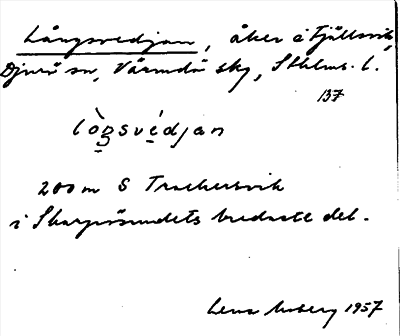 Långsvedjan, åker i Fjällsvik,
Djurö sn, Värmdö skg, Sthlms l.
137
lòŋsvédjan
200 m S Trackersvik
i Skarprösundets bredaste del.
Lena 1957